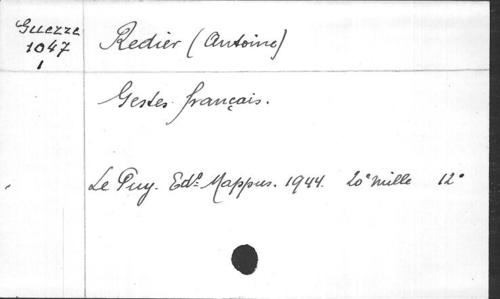 Guerre
1047
1
Redier (Antoine)
Gestes français.
Le Puy. Edns Mappus. 1944. 20e mille 12°